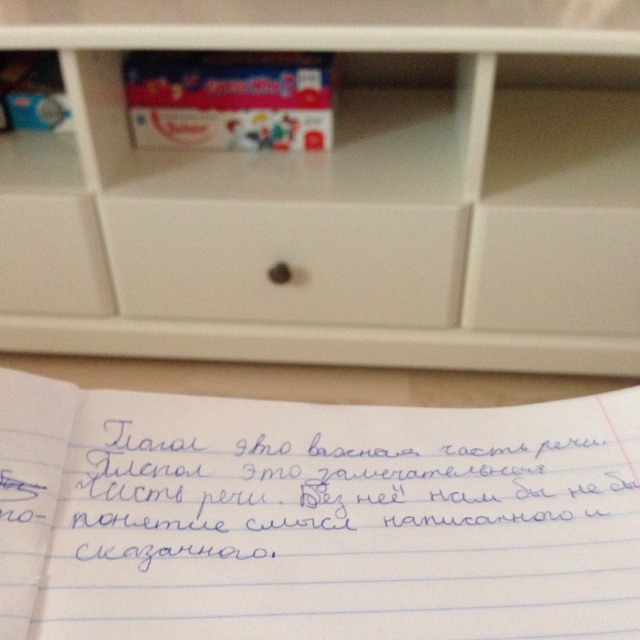 Guess Who?
Глагол это важная часть речи.
Глагол это замечательная
часть речи. Без неё нам бы не бы
понятие смысл написанного и
сказанного.
то-